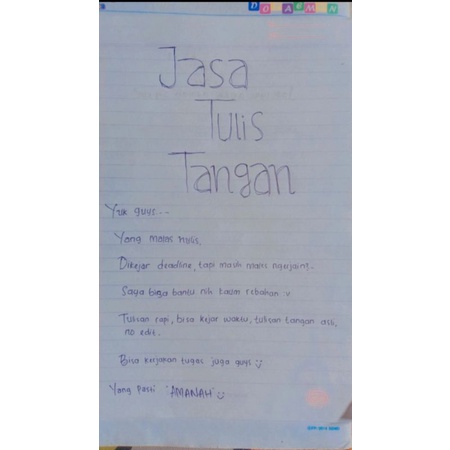 DORAEMON
Jasa
Tulis
Tangan
Yuk guys...
Yang males nulis,
Dikejar deadline, tapi masih males ngerjain?.
Saya bisa bantu nih kaum rebahan :v
Tulisan rapi, bisa kejar waktu, tulisan tangan asli,
no edit.
Bisa kerjakan tugas juga guys
Yang pasti "AMANAH"